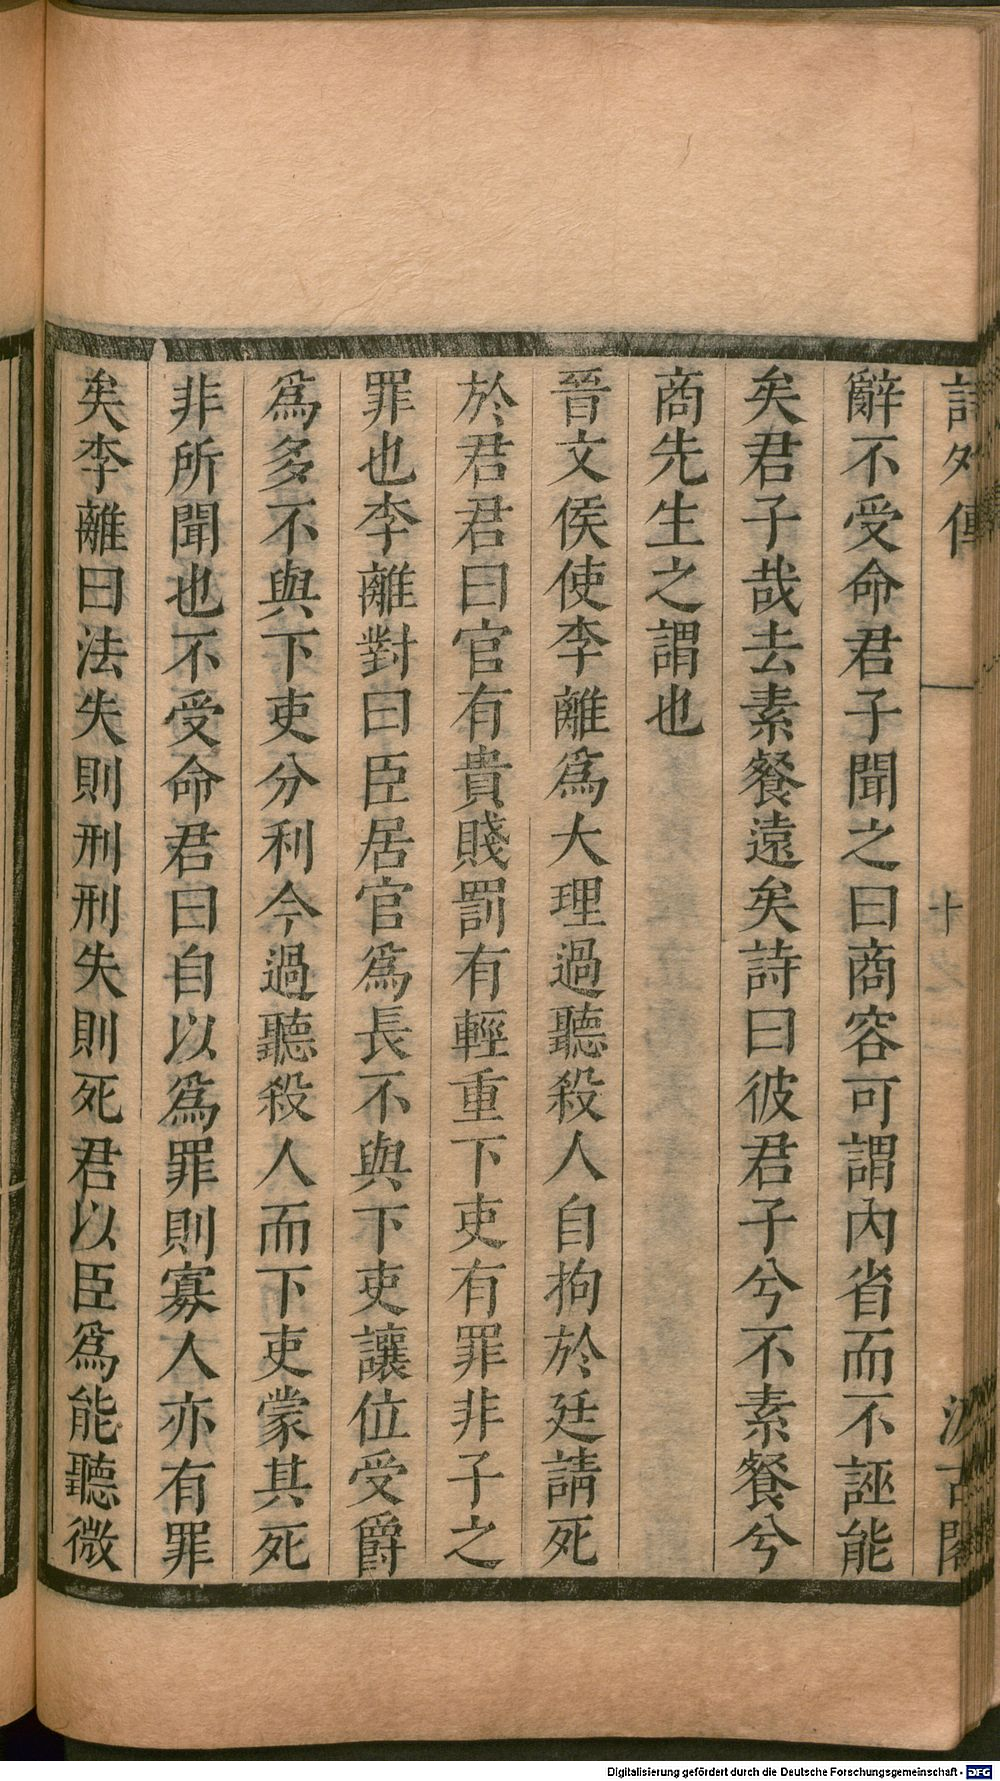 詩外傳
十
汲古閣
辭不受命君子聞之曰商容可謂內省而不誣能
矣君子哉去素餐遠矣詩曰彼君子兮不素餐兮
商先生之謂也
晉文侯使李離爲大理過聽殺人自拘於廷請死
於君君曰官有貴賤罰有輕重下吏有罪非子之
罪也李離對曰臣居官爲長不與下吏讓位受爵
爲多不與下吏分利今過聽殺人而下吏蒙其死
非所聞也不受命君曰自以爲罪則寡人亦有罪
矣李離曰法失則刑刑失則死君以臣爲能聽微
Digitalisierung gefördert durch die Deutsche Forschungsgemeinschaft - DFG